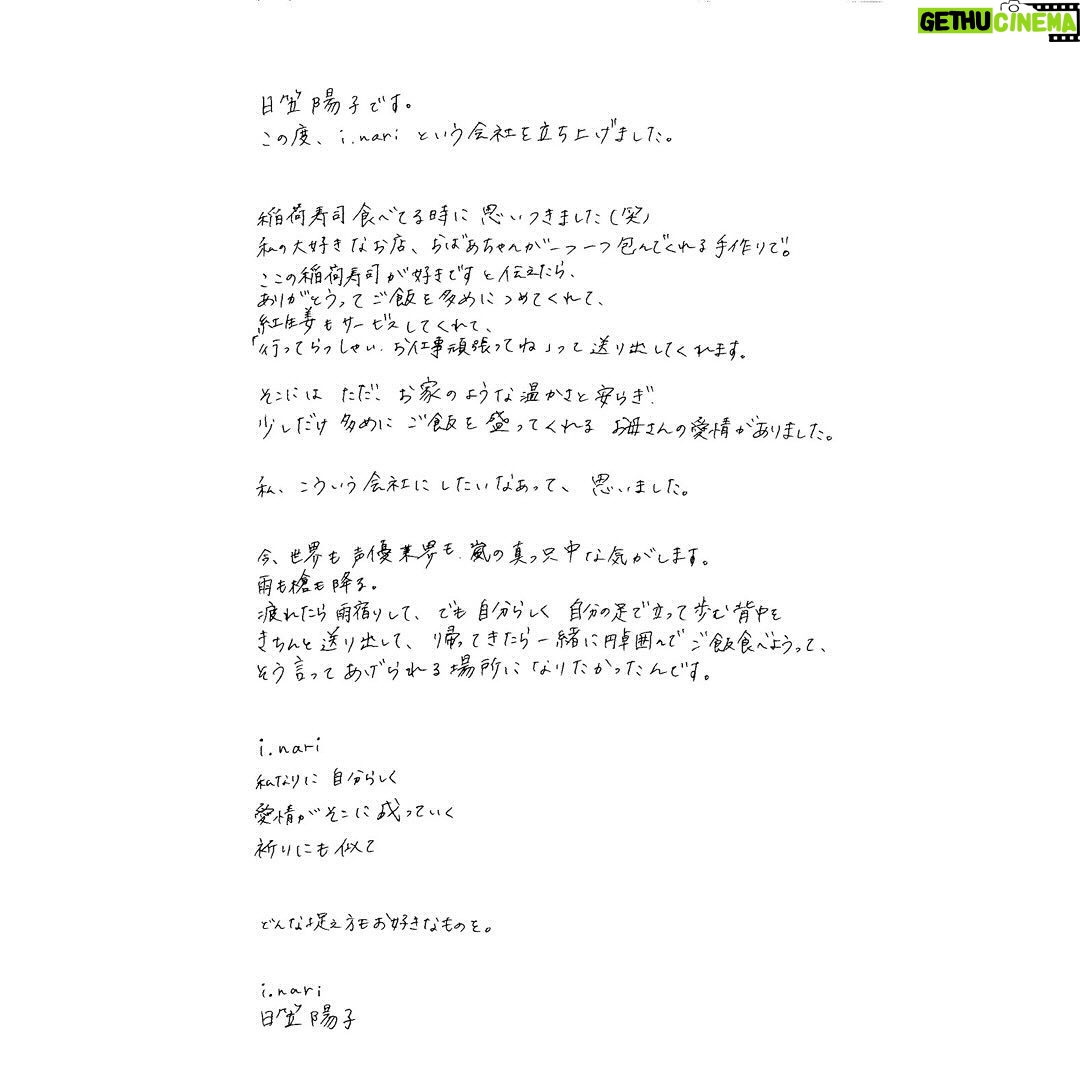 GETHUCINEMA
日笠陽子です。
この度、i.nari という会社を立ち上げました。
稲荷寿司食べてる時に思いつきました(笑)
私の大好きなお店、おばあちゃんが一つ一つ包んでくれる手作りで。
ここの稲荷寿司が好きですと伝えたら、
ありがとうってご飯を多めにつめてくれて、
紅生姜もサービスしてくれて、
「行ってらっしゃい、お仕事頑張ってね」って送り出してくれます。
そこにはただ、お家のような温かさと安らぎ、
少しだけ多めにご飯を盛ってくれるお母さんの愛情がありました。
私、こういう会社にしたいなあって、思いました。
今、世界も声優業界も、嵐の真っ只中な気がします。
雨も槍も降る。
疲れたら雨宿りして、でも自分らしく自分の足で立って歩む背中を
きちんと送り出して、帰ってきたら一緒に円卓囲んでご飯食べようって、
そう言ってあげられる場所になりたかったんです。
i.nari
私なりに自分らしく
愛情がそこに成っていく
祈りにも似て
どんな捉え方もお好きなものを。
i.nari
日笠陽子